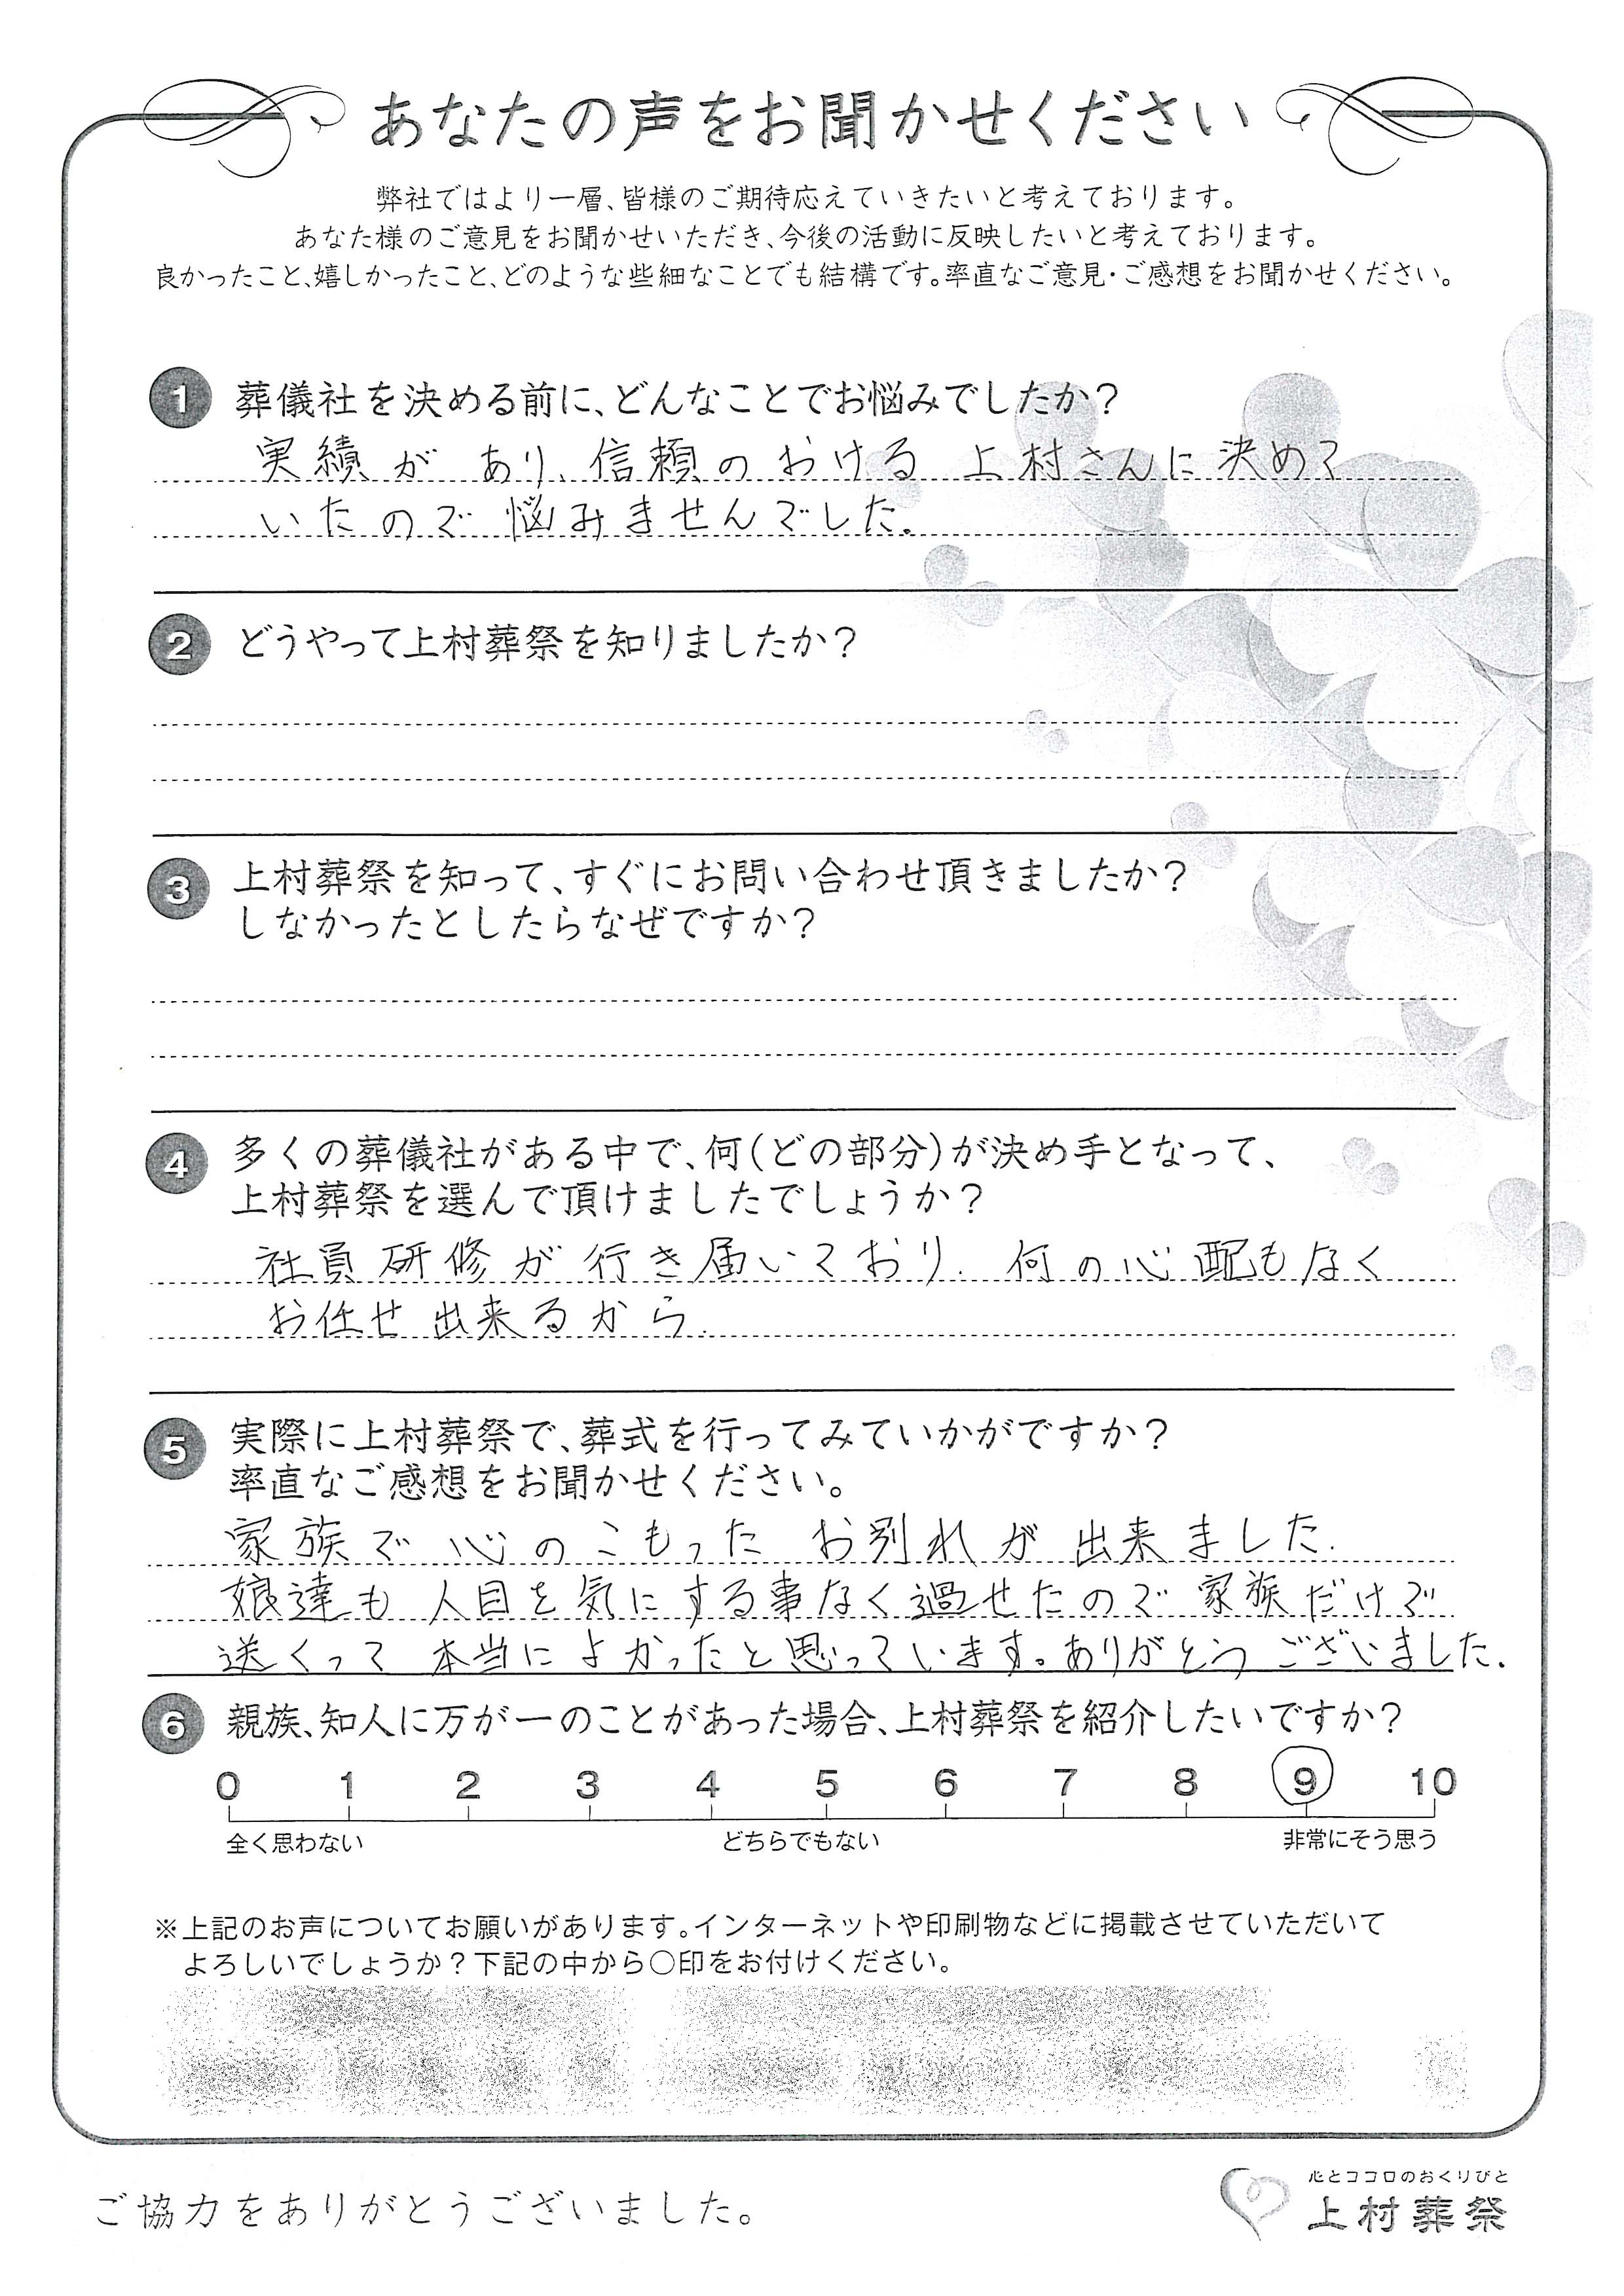 あなたの声をお聞かせください
弊社ではより一層、皆様のご期待応えていきたいと考えております。
あなた様のご意見をお聞かせいただき、今後の活動に反映したいと考えております。
良かったこと、嬉しかったこと、どのような些細なことでも結構です。率直なご意見・ご感想をお聞かせください。
1 葬儀社を決める前に、どんなことでお悩みでしたか？
実績が あり、信頼のおける 上村さんに決めて
いたので 悩みませんでした。
2 どうやって上村葬祭を知りましたか？
3 上村葬祭を知って、すぐにお問い合わせ頂きましたか？
しなかったとしたらなぜですか？
4 多くの葬儀社がある中で、何（どの部分）が決め手となって、
上村葬祭を選んで頂けましたでしょうか？
社員研修が行き届いており、何の心配もなく
お任せ出来るから.
5 実際に上村葬祭で、葬式を行ってみていかがですか？
率直なご感想をお聞かせください。
家族で 心のこもった お別れが 出来ました.
娘達も 人目を気にする事なく過せたので 家族だけで
送くって 本当に よかったと思っています。ありがとう ございました.
6 親族、知人に万が一のことがあった場合、上村葬祭を紹介したいですか？
0 1 2 3 4 5 6 7 8 9 10
全く思わない どちらでもない 非常にそう思う
※上記のお声についてお願いがあります。インターネットや印刷物などに掲載させていただいて
よろしいでしょうか？下記の中から○印をお付けください。
ご協力をありがとうございました。
心とココロのおくりびと
上村葬祭